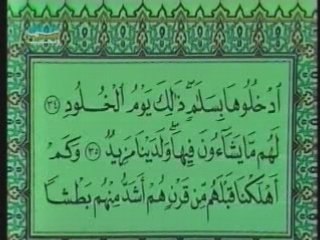 ٱدۡخُلُوهَا بِسَلَٰمٖۖ ذَٰلِكَ يَوۡمُ ٱلۡخُلُودِ ٣٤
لَهُم مَّا يَشَآءُونَ فِيهَا وَلَدَيۡنَا مَزِيدٞ ٣٥ وَكَمۡ
أَهۡلَكۡنَا قَبۡلَهُم مِّن قَرۡنٍ هُمۡ أَشَدُّ مِنۡهُم بَطۡشٗا